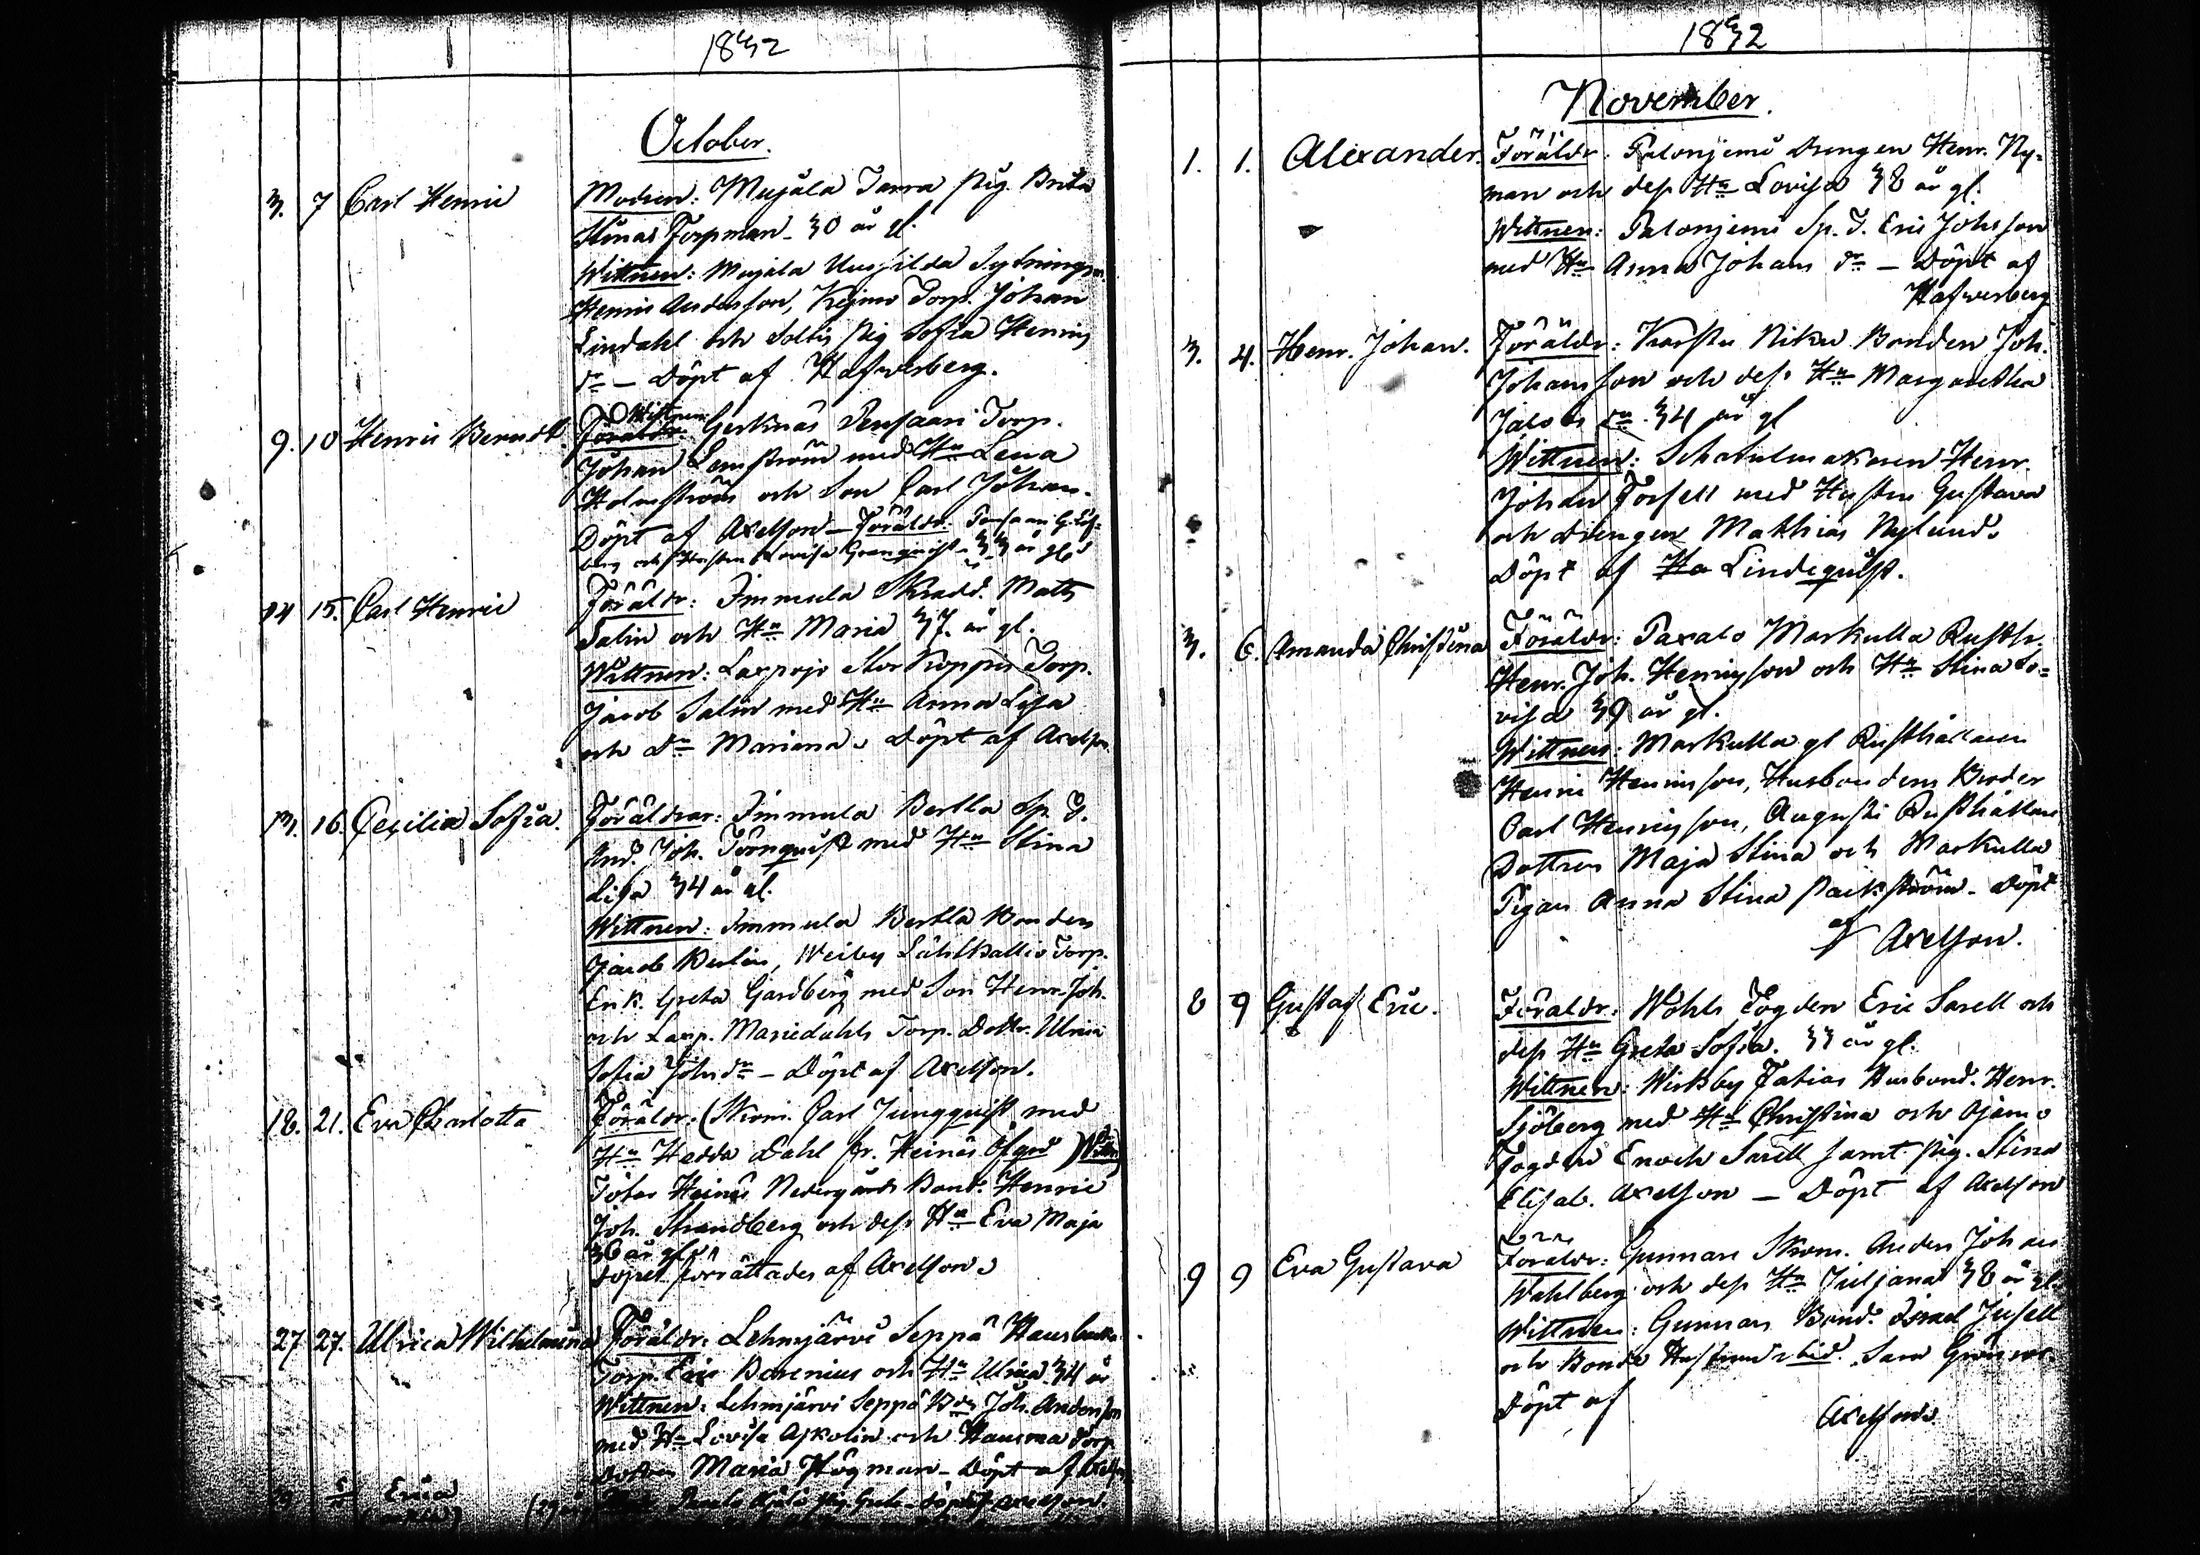 1832
October.
3. 7 Carl Henric
Modren: Mujala Jarra Pig. Brita
Stinas Forpman - 30 år gl.
Wittnen: Mujala Uusitilda Sytnings
Henric Andersson, Torp. Johan
Lindahl och Pig Sofia Henrics
dr - Döpt af Hafverberg.
9. 10 Henric Berndt.
Wittnen: Gerknäs Pensaari Torp.
Johan Lemström med Hu Lena
Holmström och Son Carl Johan.
Döpt af Axelson - Föräldr:
berg och Hustru Lovisa Granquist - 33 år gl
14 15. Carl Henric
Föräldr: Immula Skradd. Matts
Salin och Hu Maria 37 år gl.
Wittnen: Laxpojo Stor Koppis Torp.
Jacob Salin med Hu Anna Lisa
och dr Mariana. Döpt af Axelson
13. 16. Cecilia Sofia.
Föräldrar: Immula Bertla Sp. J.
And. Joh. Törnquist med Hu Stina
Lisa 34 år gl.
Wittnen: Immula Bertla Bonden
Jacob Berlin, Weiby Lähtkallio Torp.
Enk. Greta Gardberg med Son Henr. Joh.
och Laxp. Mariedahls Torp. Dottr. Ulrica
Sofia Johsdr - Döpt af Axelson.
18. 21. Eva Charlotta
Föräldr: (Skom. Carl Jungquist med
Hu Hedda Dahl fr. Heinäs Öfgrd)
Tötar Heinäs Nedergårds Bond. Henric
Joh. Strandberg och dess Hu Eva Maja
36 år gl.
Döpet förrättades af Axelson
27 27. Ulrica Wilhelmina
Föräldr: Lehmjärvi Seppä Hausbacka
Torp. Eric Barenius och Hu Ulrica 34 år
Wittnen: Lehmjärvi Seppä Bdn Joh. Andersson
med Hu Lovisa Askolin och Hausma Torp
Dottren Maria Högman - Döpt af Axelson
Erica
1832
November.
1. 1. Alexander.
Föräldr: Palonjemi Drengen Henr. Ny-
man och dess Hu Lovisa 38 år gl.
Wittnen: Palonjemi Sp. J. Eric Johsson
med Hu Anna Johans dr - Döpt af
Hafverberg
3. 4. Henr. Johan.
Föräldr: Karstu Niku Bonden Joh.
Johansson och dess Hu Margaretha
Jacobs dr. 34 år gl
Wittnen: Schatulmakaren Henr.
Johan Forsell med Hustru Gustava
och Drengen Matthias Nylund.
Döpt af Lindequist.
3. 6. Amanda Christina
Föräldr: Paxalo Markulla Rusth.
Henr. Joh. Henricsson och Hu Stina Lo-
visa 39 år gl.
Wittnen: Markulla gl Rusthållaren
Henric Henricsson, Husbondens Broder
Carl Henricsson, Augusti Rusthållare
Dottren Maja Stina och Markulla
Pigan Anna Stina Packström - Döpt
af Axelson.
8 9 Gustaf Eric.
Föräldr: Wohls Fogden Eric Sarell och
dess Hu Greta Sofia. 33 år gl.
Wittnen: Wirkby Fatias Husbond. Henr.
Sjöberg med Hu Christina och Ojamo
Fogden Enoch Sarell samt Pig. Stina
Elisab. Axelson - Döpt af Axelson
9 9 Eva Gustava
Föräldr: Gunnars Skom. Anders Johan
Wahlberg och dess Hu Juljana 38 år gl.
Wittnen: Gunnars Bond. Israel Jusell
och Bonde Hustrun Sara Grönroos
Döpt af
Axelson